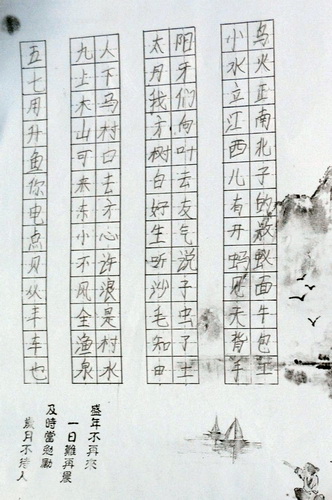 鸟火正南北子的最蚁面牛包土
小水立江西儿有开蚂见天背手
阳牙们向叶云友气说子虫了土
太月我方树白好生听沙毛知田
人下马村口去方心许浪是村水
九上木山可来东小不风全渔泉
五七用升鱼你电点见从丰车也
盛年不再来
一日難再晨
及時當勉勵
歲月不待人